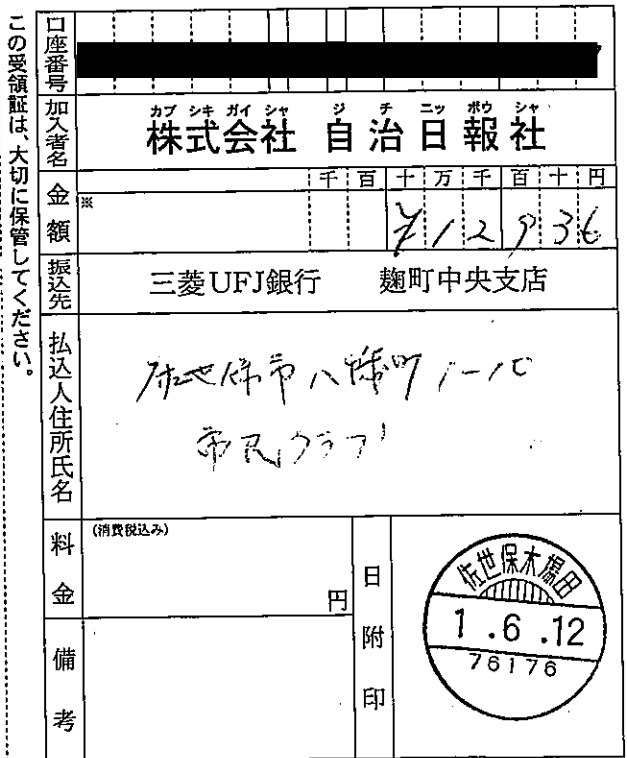 この受領証は、大切に保管してください。
口座番号
加入者名
カブ シキ ガイ シャ ジ チ ニッ ポウ シャ
株式会社 自治日報社
金額
千 百 十 万 千 百 十 円
※
¥12936
振込先
三菱UFJ銀行 麹町中央支店
払込人住所氏名
佐世保市八幡町1-10
市民クラブ
料金
(消費税込み)
円
備考
日附印
佐世保木場田
1.6.12
76176